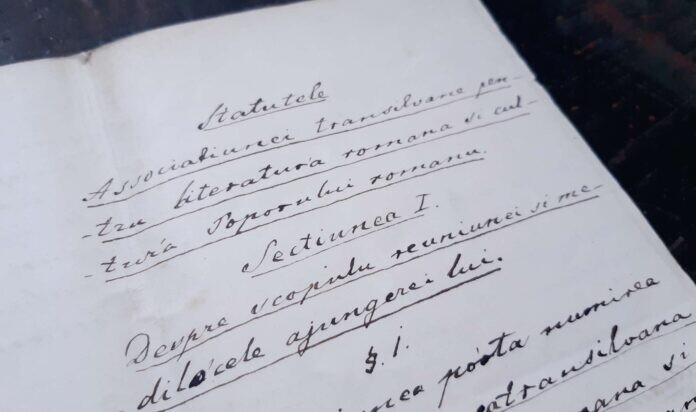 Statutele
Associatiunei transilvane pen-
-tru literatura romana si cul-
-tur'a Poporului romanu.
Sectiunea I.
Despre scopulu reuniunei si me-
dilócele ajungerei lui.
§. 1.
porta numirea
transilvana
si